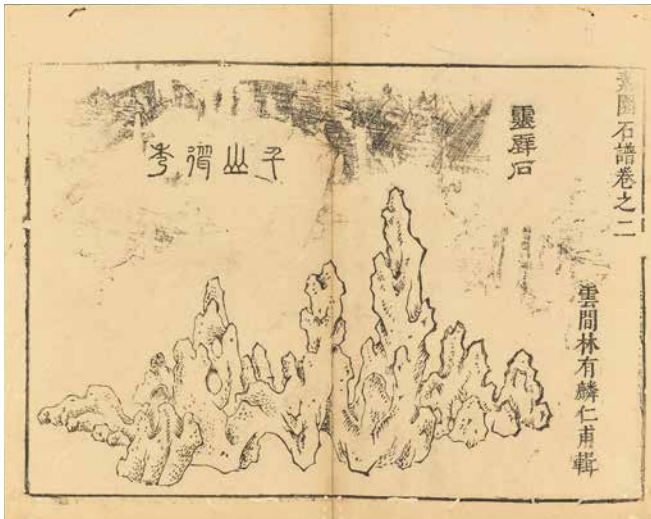 素園石譜卷之二
雲間林有麟仁甫輯
靈璧石
山得秀